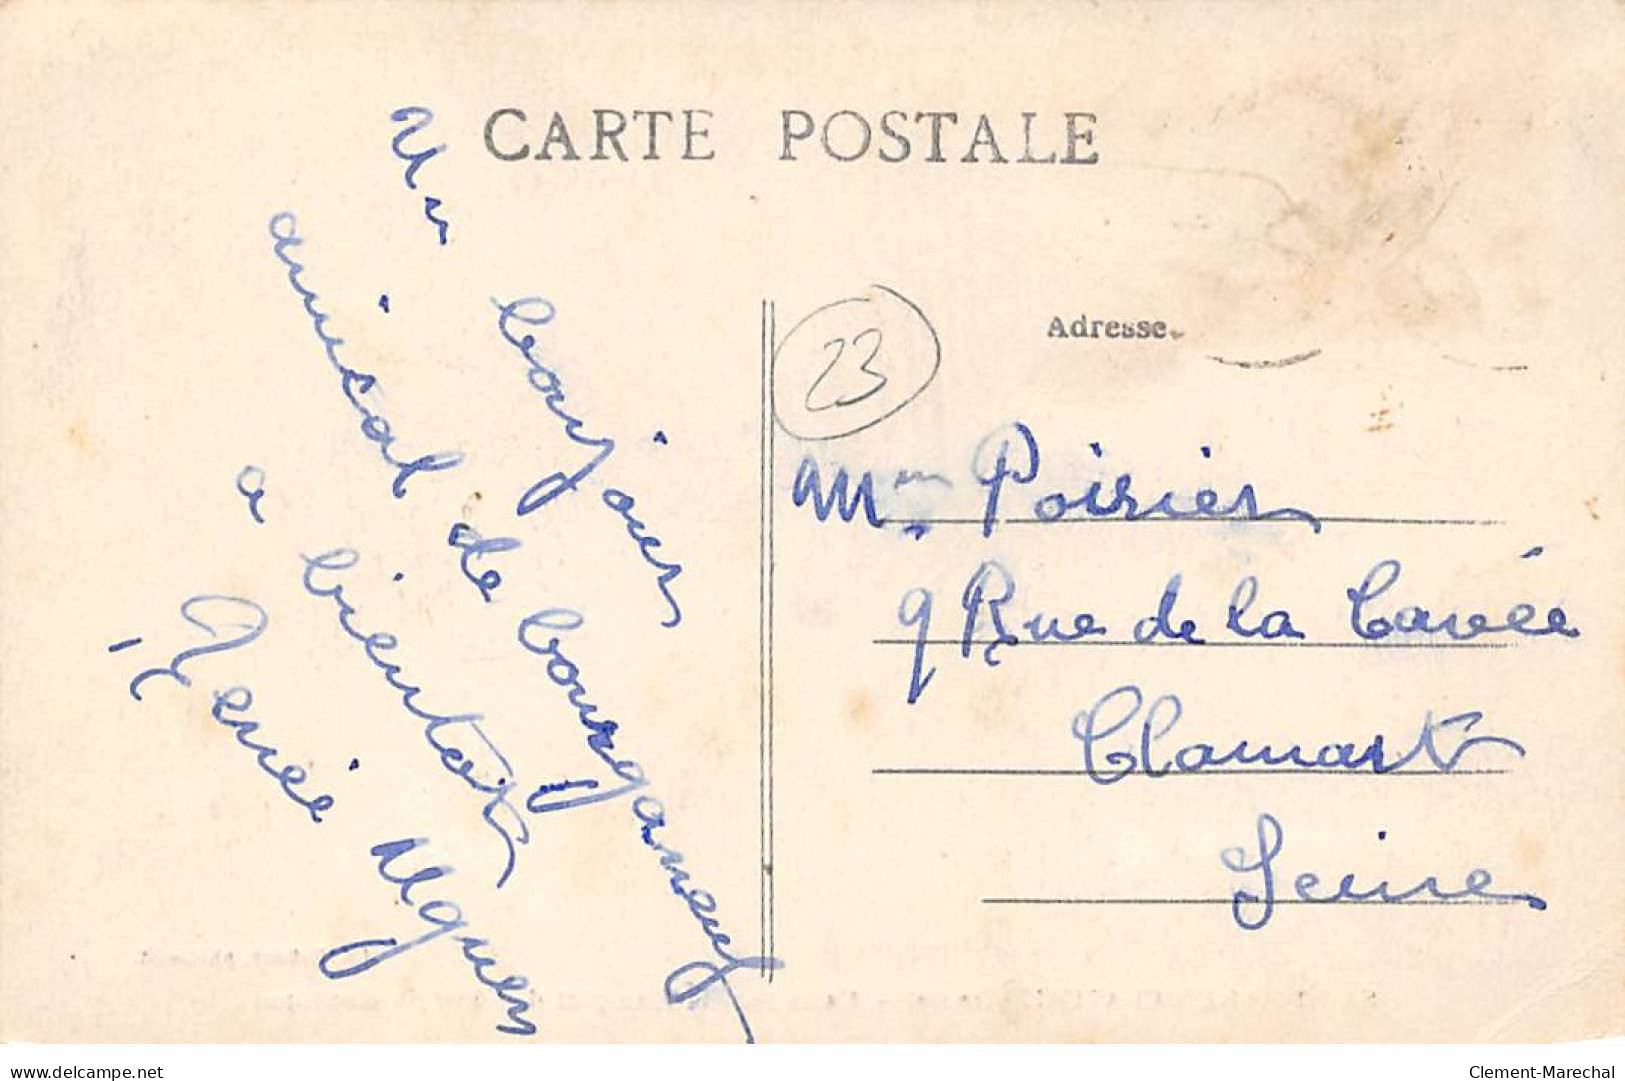 CARTE POSTALE
Un bonjour
amical de bourganeuf
a bientôt
Renée
23
Adresse
Mme Poirier
9 Rue de la Cavée
Clamart
Seine
delcampe.net
Clement-Marechal